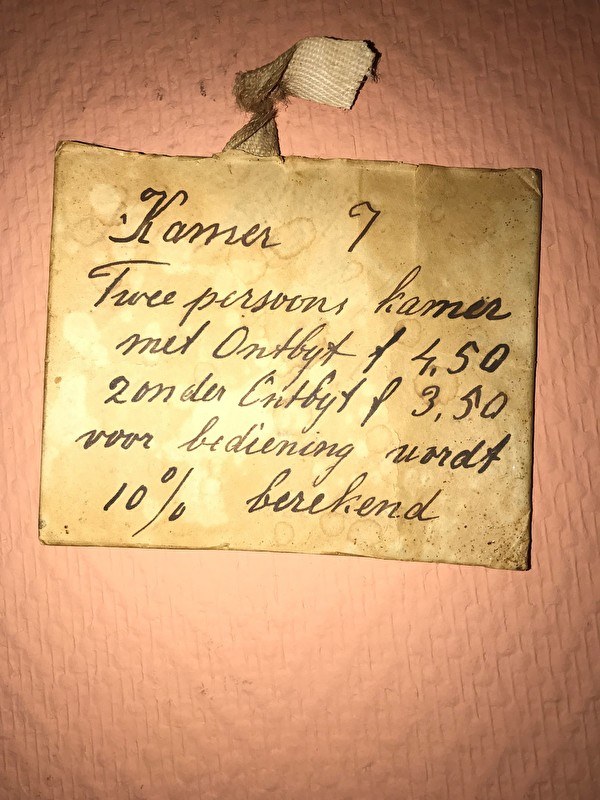 Kamer 7
Twee persoons kamer
met Ontbyt f 4,50
zonder Ontbyt f 3,50
voor bediening wordt
10% berekend